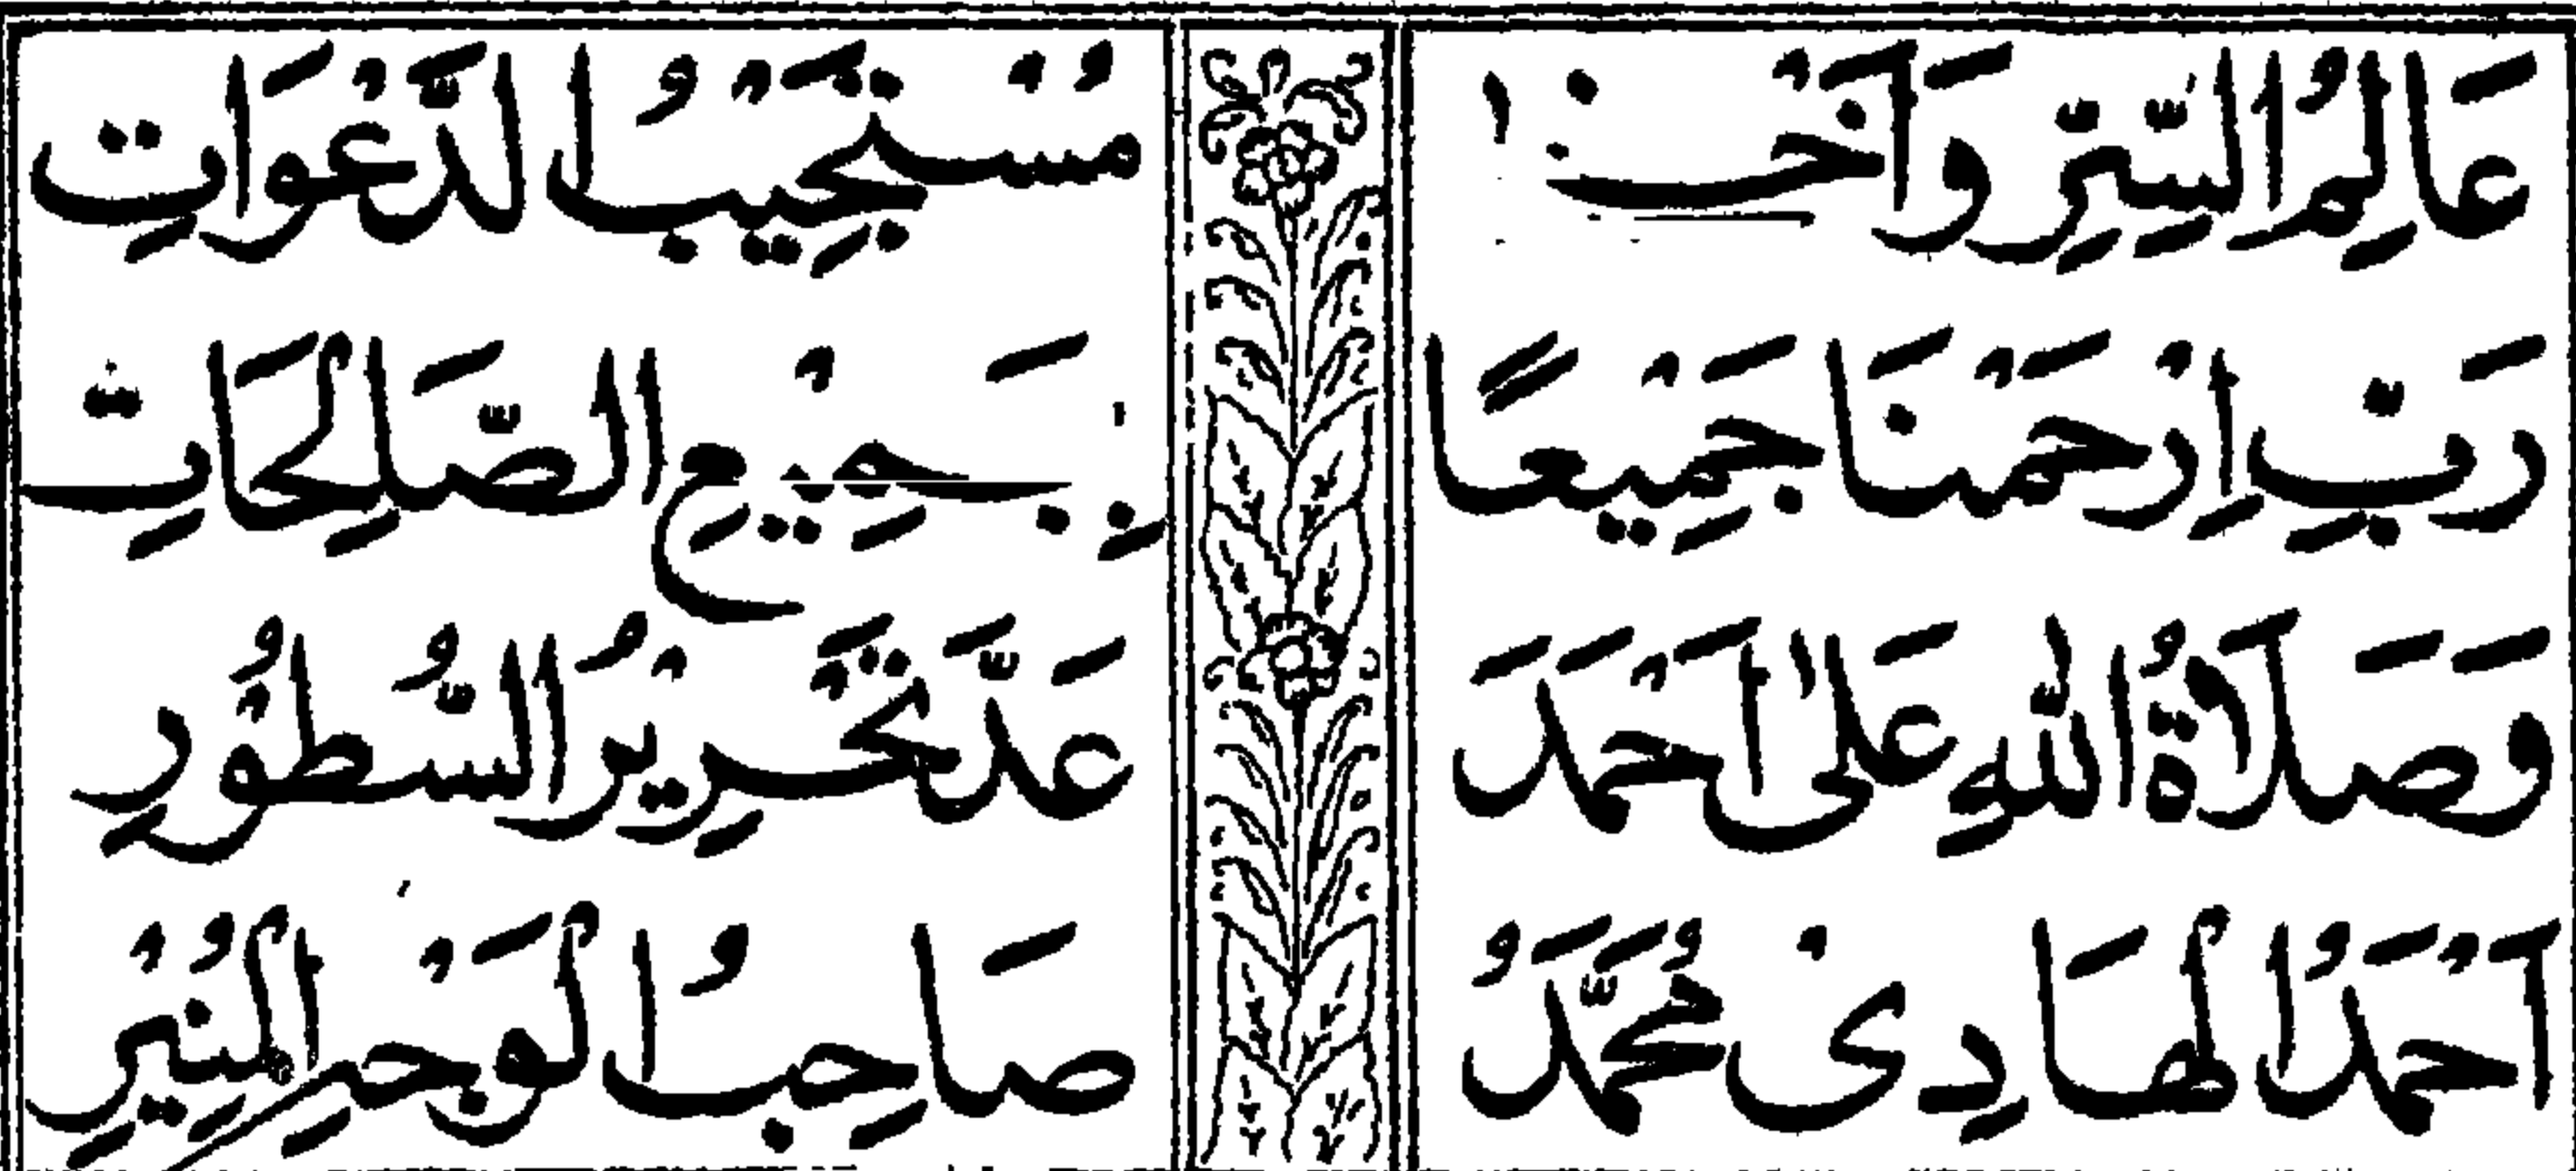 عَالِمُ السِّرِّ وَاَخْفٰى
مُسْتَجِيْبُ الدَّعْوَاتِ
رَبِّ اِرْحَمْنَا جَمِيْعًا
بِجَمِيْعِ الصَّالِحَاتِ
وَصَلَاةُ اللّٰهِ عَلٰى اَحْمَدَ
عَدَّ تَحْرِيْرُ السُّطُوْرِ
اَحْمَدُ الْهَادِىْ مُحَمَّدُ
صَاحِبُ الْوَجْهِ الْمُنِيْرِ